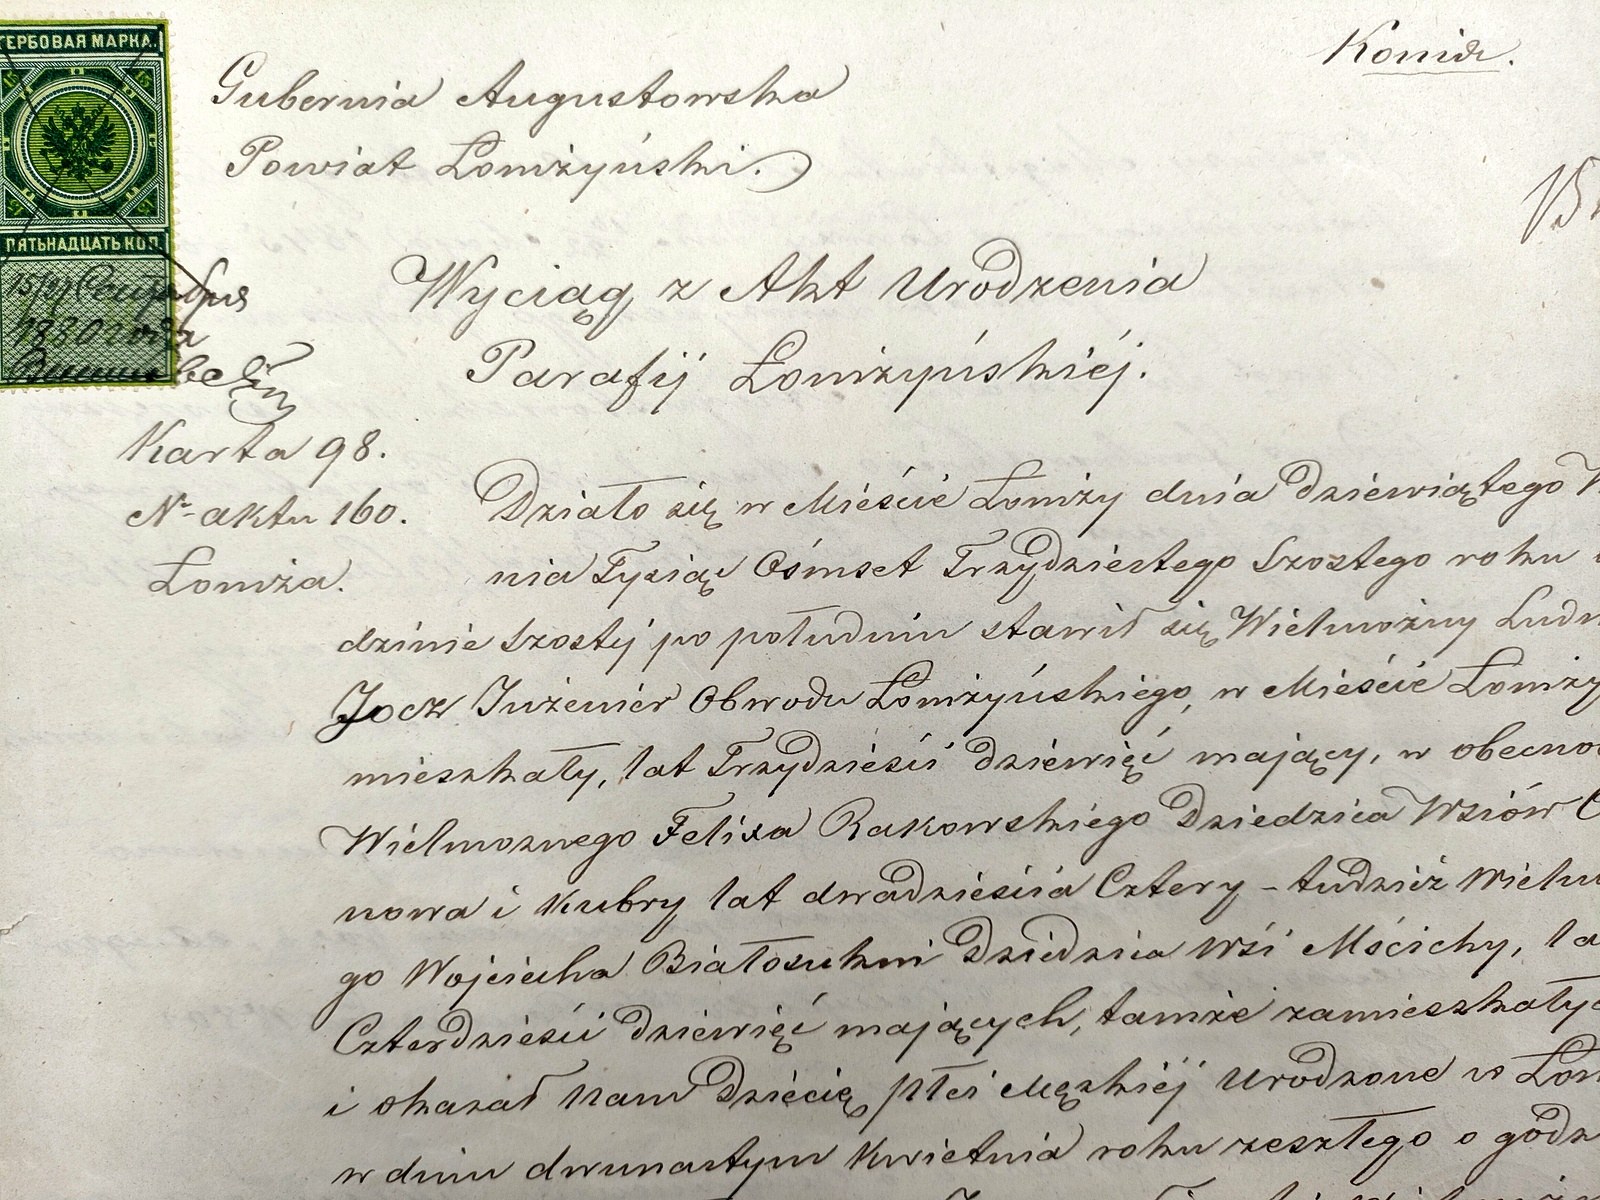 ГЕРБОВАЯ МАРКА.
15 15
15 15
ПЯТЬНАДЦАТЬ КОП.
Сентября
1880 года
Копія.
Gubernia Augustowska
Powiat Łomżyński.
Wyciąg z Akt Urodzenia
Parafij Łomżyńskiéj.
Karta 98.
Nr aktu 160.
Łomża.
Działo się w Mieście Łomży dnia dziewiątego
nia Tysiąc Ośmset Trzydziestego Szostego roku
dzinie Szostej po południu stawił się Wielmożny Ludw
Jocz Inżenier Obwodu Łomżyńskiego, w Mieście Łomży
mieszkały, lat Trzydzieści dziewięć mający, w obecnoś
Wielmoznego Felixa Rakowskiego Dziedzica Wsiów
nowa i Kubry lat dwadzieścia Cztery - tudzież Wielm
go Wojciecha Białosukni Dziedzica Wśi Mścichy, la
Czterdzieści dziewięć mających, tamże zamieszkałyc
i okazał Nam Dziecię płci Męzkiéj Urodzone w Łom
w dniu dwunastym Kwietnia roku zeszłego o godz